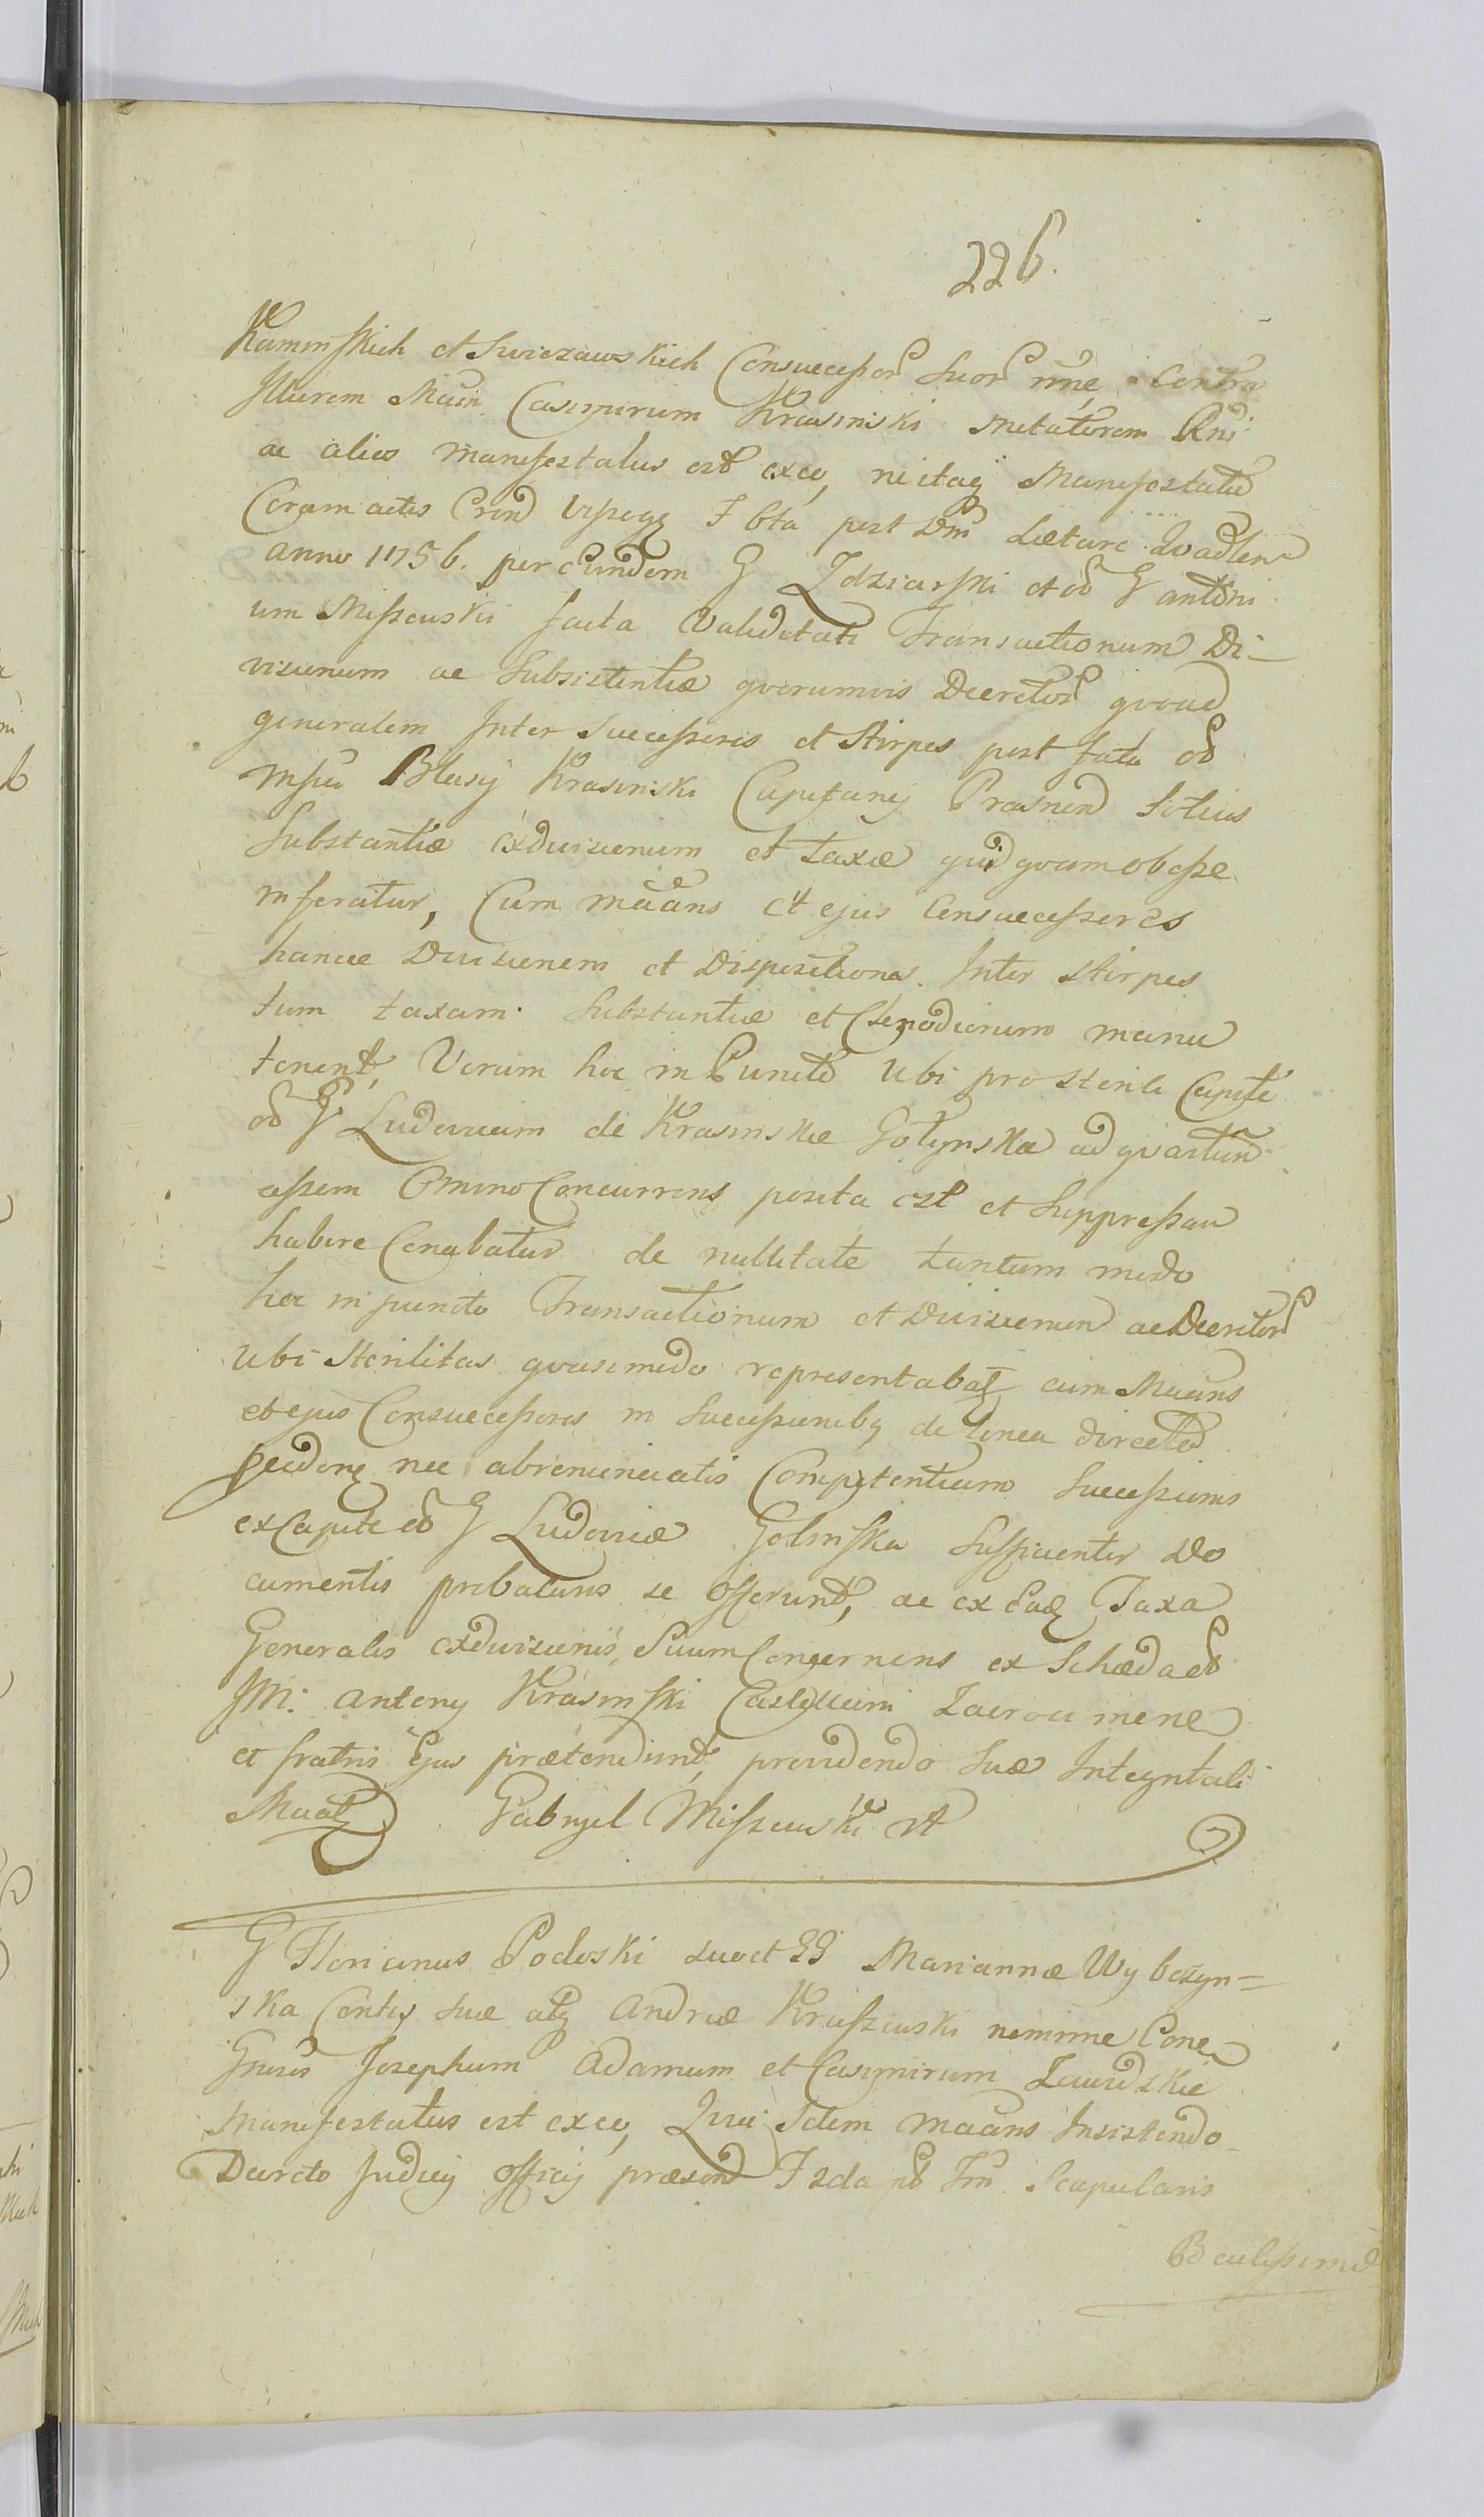 226.
Kaminskich et Swiezawskich Consuccessor suor nne, contra
Illurem Maen Casimirum Krasinski metatorem Rni
ac alios manifestatus est exce, ne itaq Manifestatio
Coram actis Crcen Visseqz Fbta post Dm Lætare Quadlem
anno 1756. per eundem G Zdziarski et od G Antoni
um Misszewski facta Validitati Transactionum Di-
visionum ac Subsistentiæ quorumvis Decretor quoad
generalem Inter Successores et Stirpes post fata od
Msci Blasij Krasinski Capitanej Prasnen totius
Substantiæ exdivisionum et taxæ quidquam obesse
inferatur, Cum Maans et ejus Consuccessores
hancce Divisionem et Dispositiona. Inter Stirpes
tum taxam. Substantiæ et Clenodiorum manu
tenent, Verum hoc in Puncto Ubi pro sterili Capite
od G Ludovicam de Krasinskie Gołynska ad quartam
assem Omnino Concurrens posita est et Suppressam
habere Conabatur de nullitate tantum modo
hoc in puncto Transactionum et Divisionum ac Decretor
Ubi Sterilitas quasimodo representabat cum Maans
et ejus Consuccessores in Successionibq de linea directa
neidonq nec abrenunciatis Competentium Successionis
ex Capite od G Ludoviæ Golinska sufficienter Do
cumentis probaturos se offerunt, ac ex Eadq Taxa
Generalis exdivisionis, Suum Concernens ex Scheda od
JM. Antony Krasinski Castellani Zacroci mene
et fratris Ejus prætendunt, providendo suæ Integritati
Maatq Gabryel Misszewski mp
G Florianus Podoski suo et GG Mariannæ Wybczyn=
ska Contis suæ atq Andreæ Kraszewski nomine Cone
Gnosos Josephum Adamum et Casimirum Zawidzkie
Manifestatus est exce, Quia Idem Maans Insistendo
Decreto Judicij Officij præsend F 2da pt Fm Scapularis
Bealissimæ